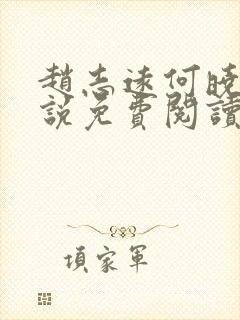 趙志遠何曉
說免費閱讀
項家軍